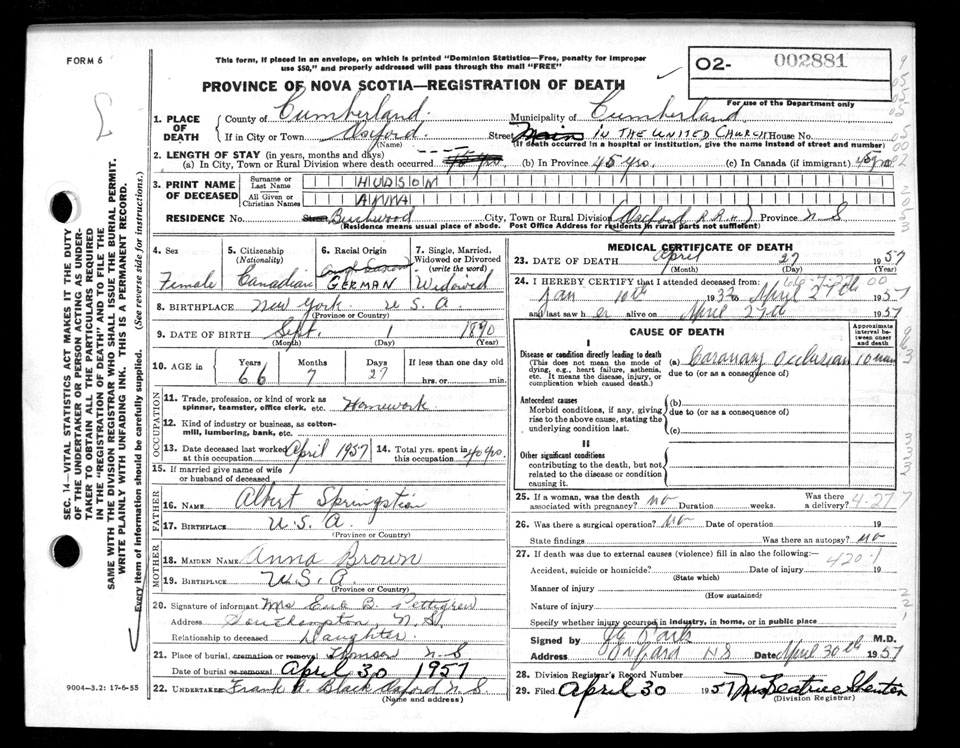 FORM 6
This form, if placed in an envelope, on which is printed "Dominion Statistics—Free, penalty for improper
use $50," and properly addressed will pass through the mail "FREE"
PROVINCE OF NOVA SCOTIA—REGISTRATION OF DEATH
O2- 002881
For use of the Department only
1. PLACE OF DEATH County of Cumberland Municipality of Cumberland
If in City or Town Oxford (Name) Street Main IN THE UNITED CHURCH House No.
(If death occurred in a hospital or institution, give the name instead of street and number)
2. LENGTH OF STAY (in years, months and days)
(a) In City, Town or Rural Division where death occurred 45 yrs. (b) In Province 45 yrs. (c) In Canada (if immigrant) 45 yrs
3. PRINT NAME OF DECEASED Surname or Last Name HUDSON
All Given or Christian Names ANNA
RESIDENCE No. Street Birchwood City, Town or Rural Division Oxford R.R. Province N S
(Residence means usual place of abode. Post Office Address for residents in rural parts not sufficient)
4. Sex Female
5. Citizenship (Nationality) Canadian
6. Racial Origin GERMAN
7. Single, Married, Widowed or Divorced (write the word) Widowed
8. BIRTHPLACE New York U S A.
(Province or Country)
9. DATE OF BIRTH Sept. 1 1890
(Month) (Day) (Year)
10. AGE in Years 66 Months 7 Days 27 If less than one day old
hrs. or min.
OCCUPATION
11. Trade, profession, or kind of work as spinner, teamster, office clerk, etc. Homework
12. Kind of industry or business, as cotton-mill, lumbering, bank, etc.
13. Date deceased last worked at this occupation April 1957 14. Total yrs. spent in this occupation 40 yrs.
15. If married give name of wife or husband of deceased
FATHER
16. NAME Albert Springstien
17. BIRTHPLACE U.S.A.
(Province or Country)
MOTHER
18. MAIDEN NAME Anna Brown
19. BIRTHPLACE U.S.A.
(Province or Country)
20. Signature of informant Mrs B. Pettigrew
Address Southampton, N.S.
Relationship to deceased Daughter.
21. Place of burial, cremation or removal Thomson N-S
Date of burial or removal April 30 1957
22. UNDERTAKER Frank A. Black Oxford N.S.
(Name and address)
MEDICAL CERTIFICATE OF DEATH
23. DATE OF DEATH April 27 1957
(Month) (Day) (Year)
24. I HEREBY CERTIFY that I attended deceased from:
Jan 10th 1932 to April 27th 1957
and last saw her alive on April 27th 1957
CAUSE OF DEATH
Approximate interval between onset and death
I
Disease or condition directly leading to death (a) Coronary Occlusion 10 min
(This does not mean the mode of dying, e.g., heart failure, asthenia, etc. It means the disease, injury, or complication which caused death.)
due to (or as a consequence of)
Antecedent causes
Morbid conditions, if any, giving rise to the above cause, stating the underlying condition last.
(b)
due to (or as a consequence of)
(c)
II
Other significant conditions
contributing to the death, but not related to the disease or condition causing it.
25. If a woman, was the death associated with pregnancy? no Duration weeks. Was there a delivery? 4-27 7
26. Was there a surgical operation? No Date of operation 19
State findings Was there an autopsy? no
27. If death was due to external causes (violence) fill in also the following:— 420.1
Accident, suicide or homicide? Date of injury 19
(State which)
Manner of injury
(How sustained)
Nature of injury
Specify whether injury occurred in industry, in home, or in public place
Signed by M.D.
Address Oxford NS Date April 30th 1957
28. Division Registrar's Record Number
29. Filed April 30 1957 Mrs Beatrice Shenton
(Division Registrar)
9004—3.2: 17-6-55
SEC. 14—VITAL STATISTICS ACT MAKES IT THE DUTY
OF THE UNDERTAKER OR PERSON ACTING AS UNDER-
TAKER TO OBTAIN ALL THE PARTICULARS REQUIRED
IN THE "REGISTRATION OF DEATH" AND TO FILE THE
SAME WITH THE DIVISION REGISTRAR WHO SHALL ISSUE THE BURIAL PERMIT.
WRITE PLAINLY WITH UNFADING INK. THIS IS A PERMANENT RECORD.
Every item of information should be carefully supplied. (See reverse side for instructions.)